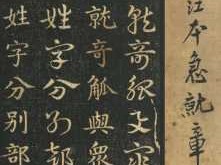 江本急就章
就奇觚與衆
就奇觚與衆
姓字分别部
姓字分別部